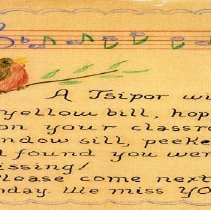 A Tsipor wi
yellow bill, hop
on your classro
ndow sill, peeke
d found you wer
issing!
lease come next
nday. We miss YO